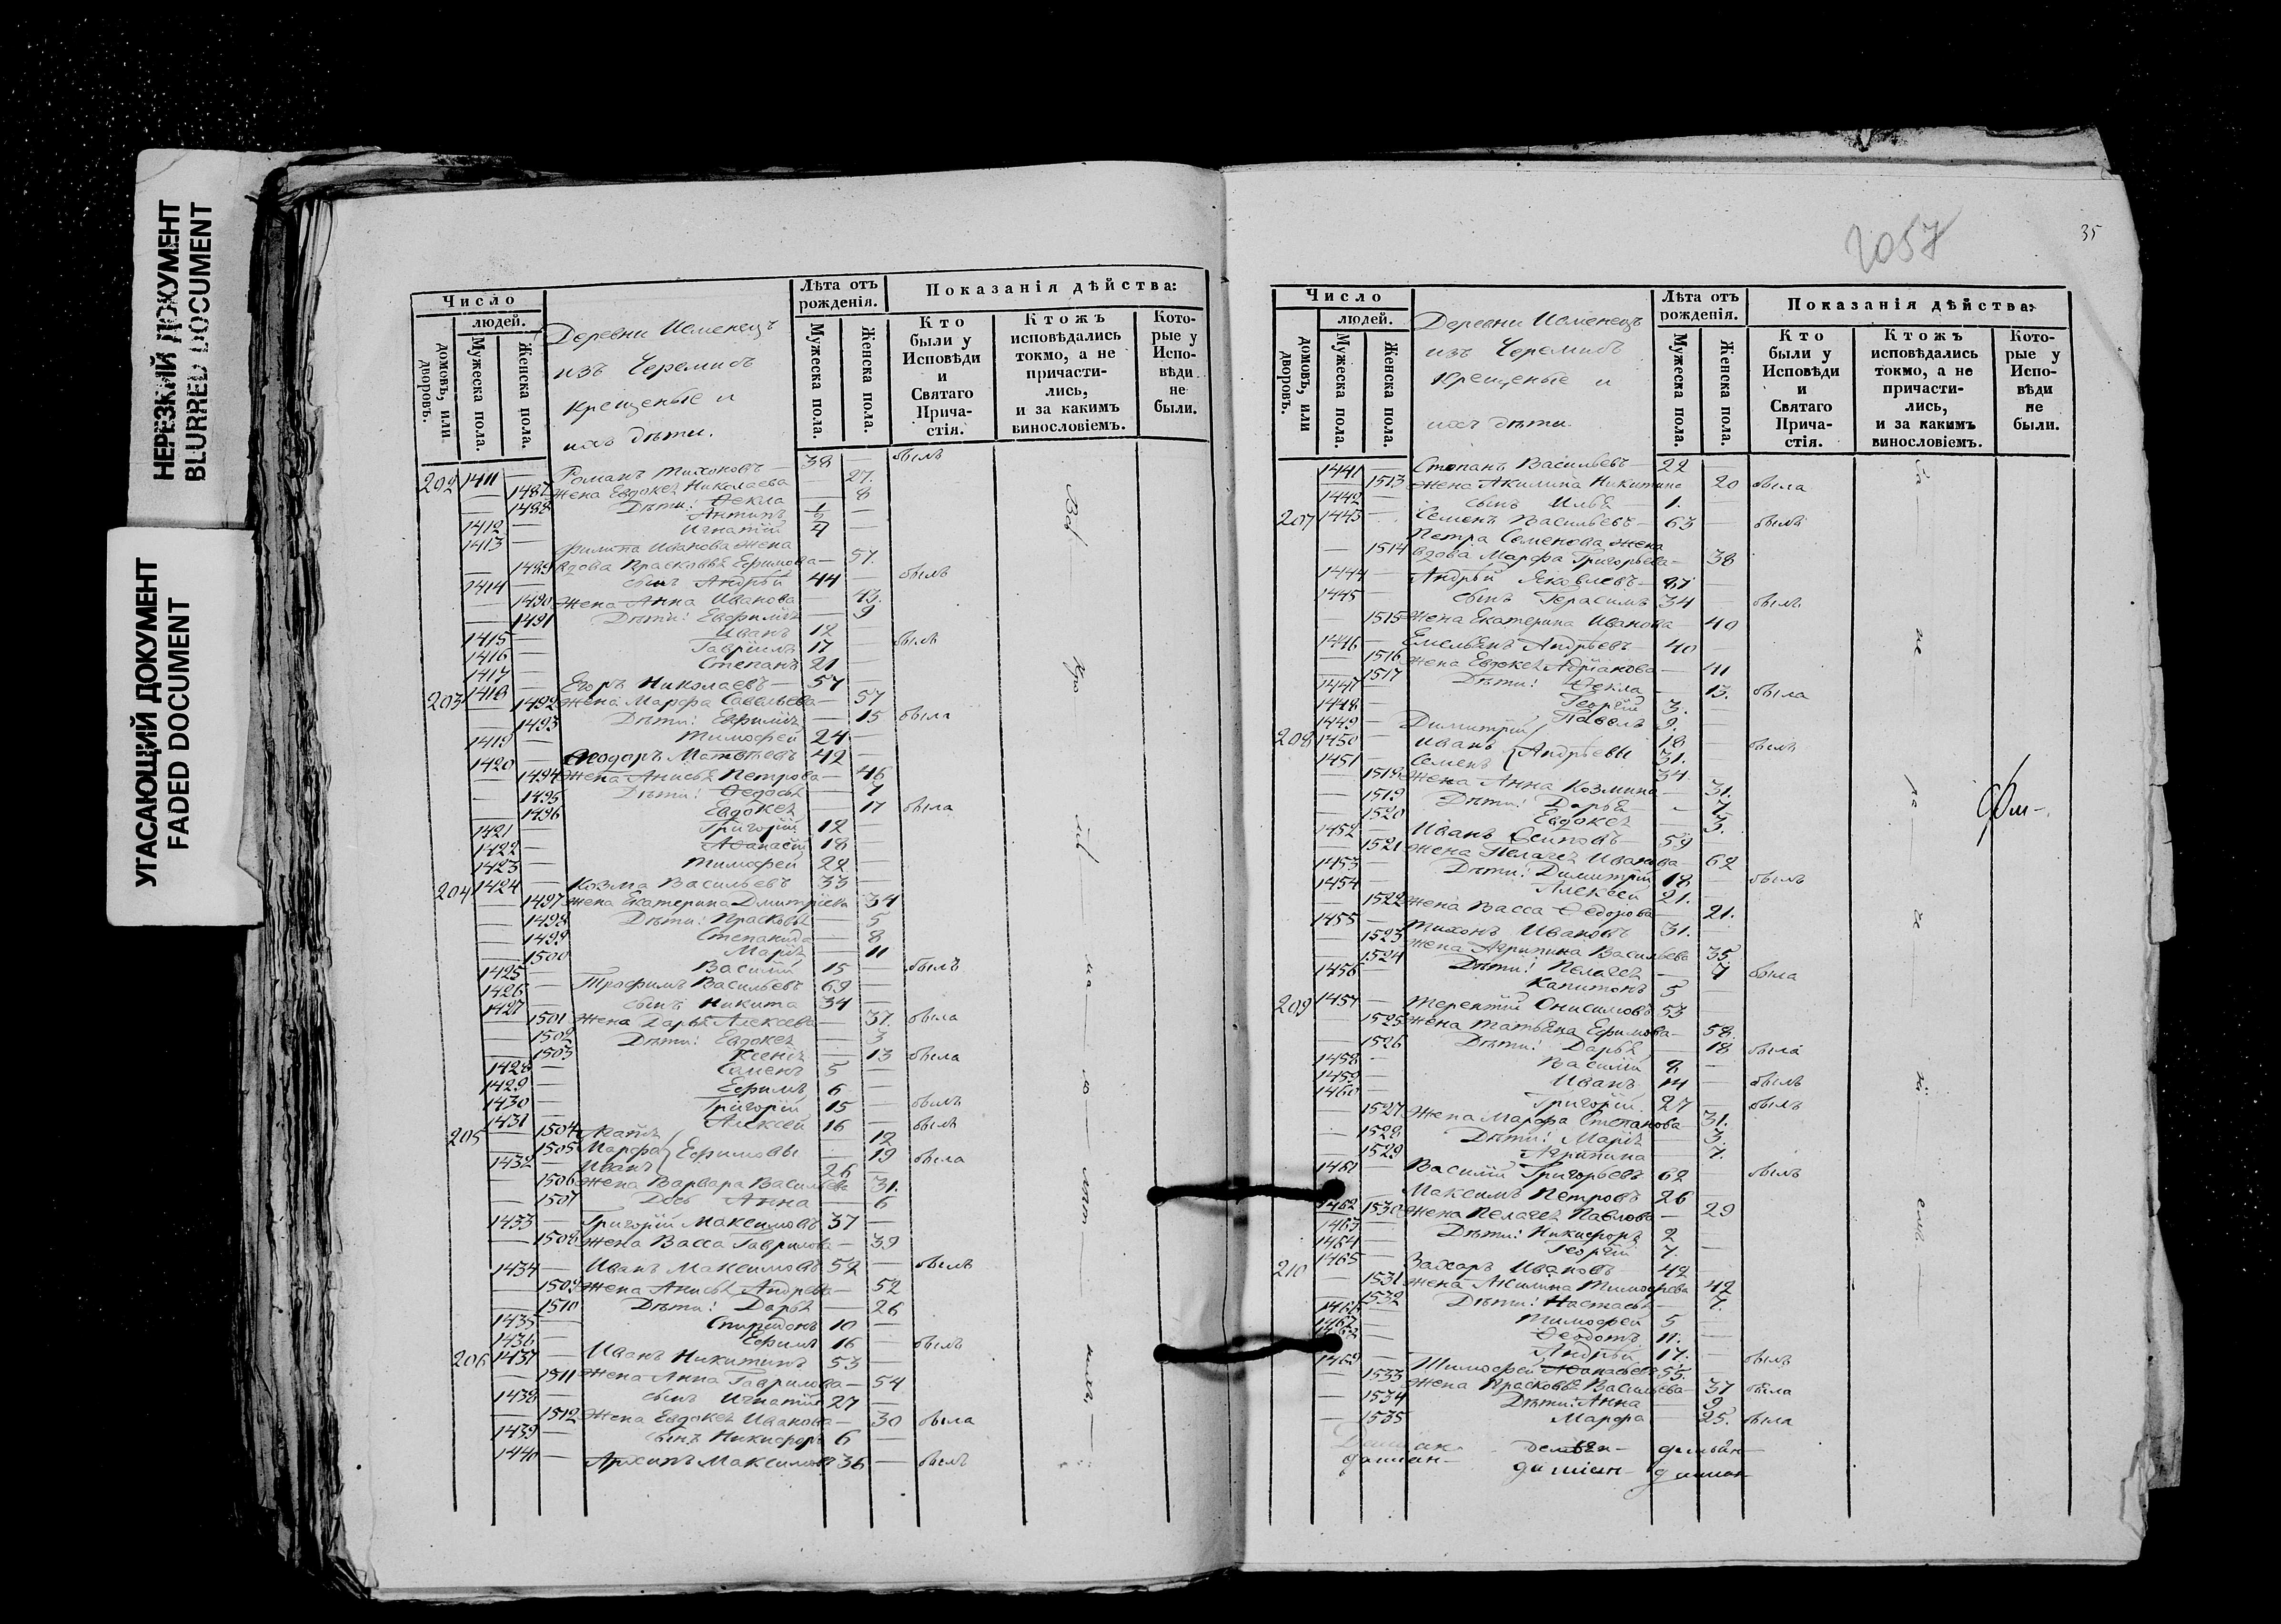 НЕРЕЗКИЙ ДОКУМЕНТ
BLURRED DOCUMENT
УГАСАЮЩИЙ ДОКУМЕНТ
FADED DOCUMENT
Число
людей.
домовъ, или дворовъ.
Мужеска пола.
Женска пола.
Деревни
изъ Черемисъ
крещеные и
ихъ дѣти.
Лѣта отъ рожденія.
Мужеска пола.
Женска пола.
Показанія дѣйства:
Кто были у Исповѣди и Святаго Причастія.
Ктожъ исповѣдались токмо, а не причастились, и за какимъ винословіемъ.
Которые у Исповѣди не были.
202 1411 — Романъ Тихоновъ — 38 — былъ
— 1487 Жена Евдокея Николаева — 27.
— 1488 Дѣти: Ѳекла — 8
1412 — Антипъ 1/2 —
1413 — Игнатій 4 —
Филипа Иванова жена
— 1489 вдова Прасковья Ефимова — 57.
1414 — сынъ Андрѣй 44 — былъ
— 1490 Жена Анна Иванова — 43.
— 1491 Дѣти: Евфимія — 9
1415 — Иванъ 12 —
1416 — Гавріилъ 17 — былъ
1417 — Степанъ 21 —
203 1418 — Егоръ Николаевъ — 57 —
— 1492 Жена Марфа Савельева — 57
— 1493 Дѣти: Евфимія — 15 была
1419 — Тимофей 24 —
1420 — Ѳеодоръ Матвѣевъ 42 —
— 1494 Жена Анисья Петрова — 46
— 1495 Дѣти: Ѳедосья — 7
— 1496 Евдокея — 17 была
1421 — Григорій 12 —
1422 — Аѳанасій 18 —
1423 — Тимофей 22 —
204 1424 — Козма Васильевъ 33 —
— 1497 Жена Екатерина Дмитріева 34
— 1498 Дѣти: Прасковья — 5
— 1499 Степанида — 8
— 1500 Марія — 11
1425 — Василій 15 — былъ
1426 — Трофимъ Васильевъ 69 —
1427 — сынъ Никита 34 —
— 1501 Жена Дарья Алексѣева — 37. была
— 1502 Дѣти: Евдокея — 3
— 1503 Ксенія — 13 была
1428 — Семенъ 5 —
1429 — Ефимъ 6 —
1430 — Григорій 15 — былъ
1431 — Алексѣй 16 — былъ
205 — 1504 Агафія — 12
— 1505 Марфа Ефимовы — 19 была
1432 — Иванъ 26 —
— 1506 Жена Варвара Васильева 31.
— 1507 Дочь Анна — 6
1433 — Григорій Максимовъ 37 —
— 1508 Жена Васса Гаврилова — 39
1434 — Иванъ Максимовъ 52 — былъ
— 1509 Жена Анисья Андреева — 52
— 1510 Дѣти: Дарья — 26
1435 — Спиридонъ 10 —
1436 — Ефимъ 16 — былъ
206 1437 — Иванъ Никитинъ 53 —
— 1511 Жена Анна Гаврилова — 54
1438 — сынъ Игнатій 27 —
— 1512 Жена Евдокея Иванова — 30 была
1439 — сынъ Никифоръ 6 —
1440 — Архипъ Максимовъ 36 — былъ
2057
35
Число
людей.
домовъ, или дворовъ.
Мужеска пола.
Женска пола.
Деревни
изъ Черемисъ
крещеные и
ихъ дѣти.
Лѣта отъ рожденія.
Мужеска пола.
Женска пола.
Показанія дѣйства:
Кто были у Исповѣди и Святаго Причастія.
Ктожъ исповѣдались токмо, а не причастились, и за какимъ винословіемъ.
Которые у Исповѣди не были.
1441 — Степанъ Васильевъ — 22 —
1513 Жена Акилина Никитина 20 была
1442 — сынъ Илья — 1. —
207 1443 — Семенъ Васильевъ — 63 — былъ
Петра Семенова жена
— 1514 вдова Марфа Григорьева — 38
1444 — Андрѣй Яковлевъ — 87
1445 — сынъ Герасимъ 34 — былъ
— 1515 Жена Екатерина Иванова — 40
1446 — Емельянъ Андрѣевъ — 40 —
— 1516 Жена Евдокея Адріанова — 41
— 1517 Дѣти: Ѳекла — 13. была
1447 — Георгій 3. —
1448 — Павелъ 9. —
1449 — Димитрій 18 — былъ
208 1450 — Иванъ Андрѣевы 31. —
1451 — Семенъ 34
— 1518 Жена Анна Козмина — 31.
— 1519 Дѣти: Дарья — 7
— 1520 Евдокея — 3.
1452 — Иванъ Осиповъ — 59
— 1521 Жена Пелагея Иванова — 62
1453 — Дѣти: Димитрій 18 — былъ
1454 — Алексѣй 21. —
— 1522 Жена Васса Ѳедорова — 21.
1455 — Тихонъ Ивановъ 31. —
— 1523 Жена Агрипина Васильева 35.
— 1524 Дѣти: Пелагея — 7 была
1456 — Капитонъ 5 —
209 1457 — Терентій Онисимовъ 53
— 1525 Жена Татьяна Ефимова — 58.
— 1526 Дѣти: Дарья — 18 была
1458 — Василій 8 —
1459 — Иванъ 14 — былъ
1460 — Григорій 27 — былъ
— 1527 Жена Марфа Степанова 31.
— 1528 Дѣти: Марія — 3.
— 1529 Агрипина — 7.
1461 — Василій Григорьевъ 62 — былъ
1462 Максимъ Петровъ 26
— 1530 Жена Пелагея Павлова — 29
1463 — Дѣти: Никифоръ 2 —
1464 — Георгій 7. —
210 1465 Захаръ Ивановъ 42 —
— 1531 Жена Акилина Тимофѣева 42
— 1532 Дѣти: Настасья — 7.
1466 — Тимофей 5 —
1467 — Ѳеодотъ 11. —
1468 — Андрѣй 17. — былъ
1469 — Тимофей Аѳанасьевъ 55.
— 1533 Жена Прасковья Васильева — 37 была
— 1534 Дѣти: Анна — 9
— 1535 Марфа — 25. была